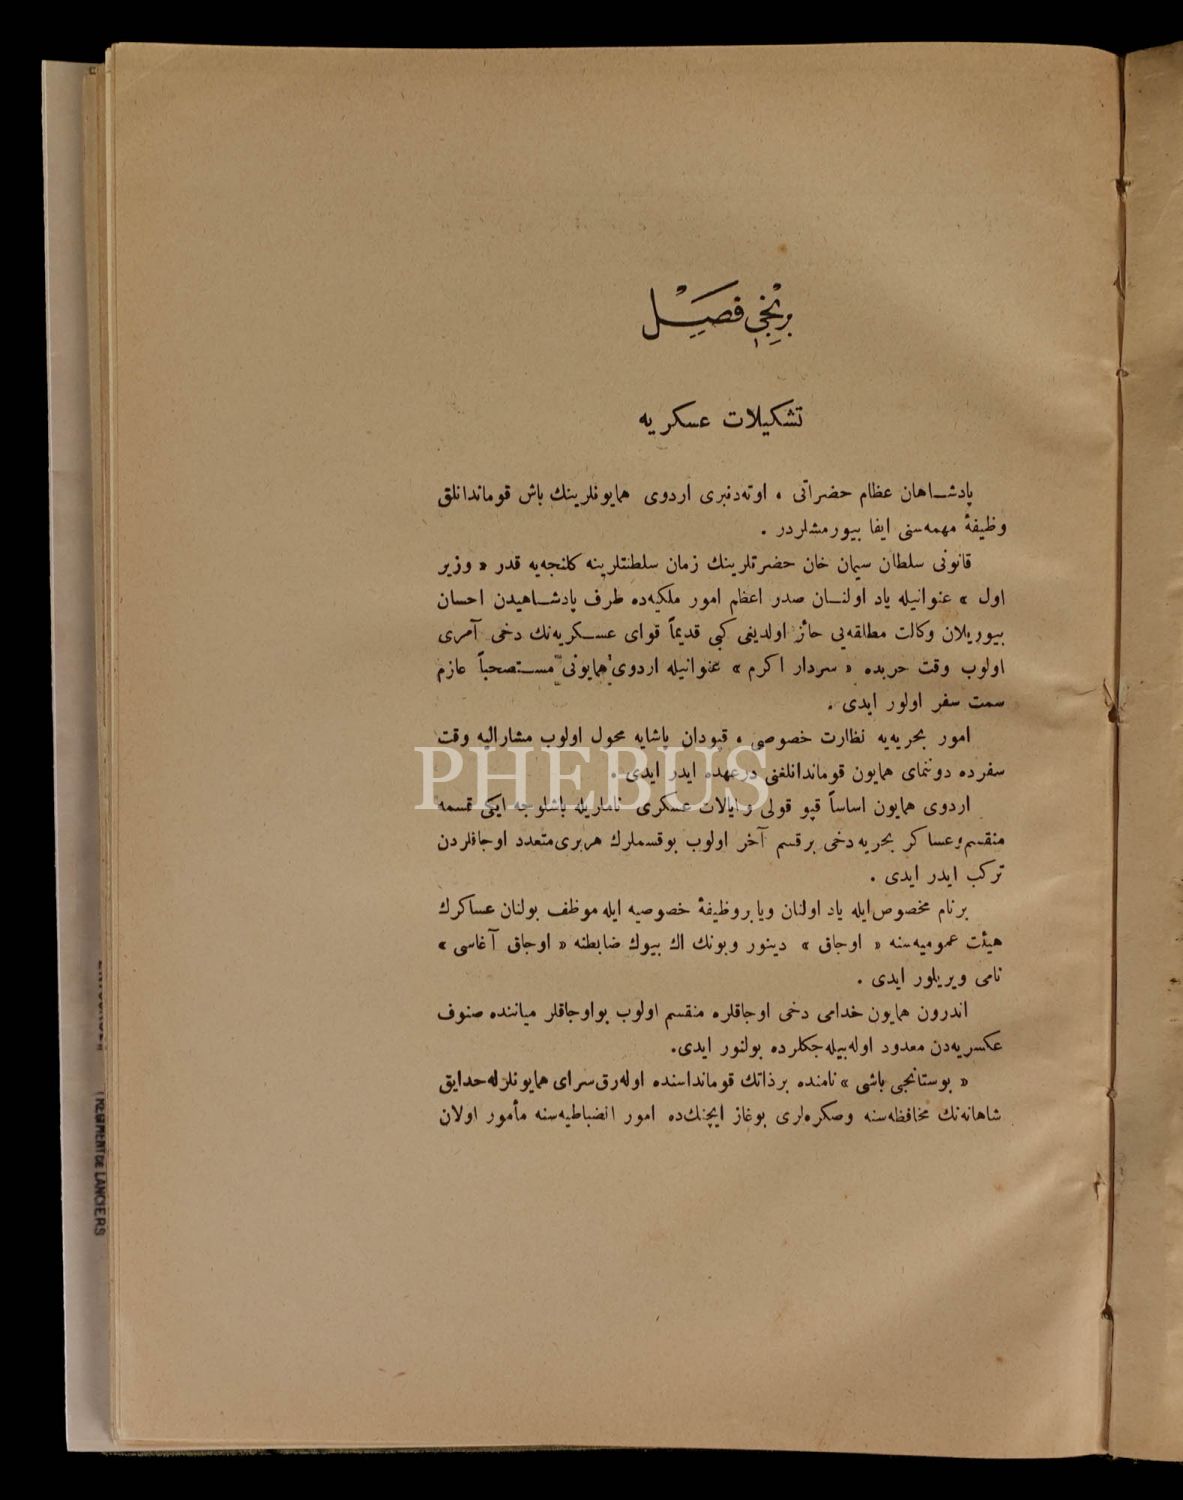 برنجی فصل
تشكیلات عسكریه
پادشـاهان عظام حضراتی ، اوته‌دنبری اردوی همایونلرینك باش قوماندانلق
وظیفهٔ مهمه‌سنی ایفا بیورمشلردر .
قانونی سلطان سیمان خان حضرتلرینك زمان سلطنتلرینه كلنجه‌یه قدر « وزیر
اول » عنوانیله یاد اولنـان صدر اعظم امور ملكیه‌ده طرف پادشـاهیدن احسان
بیوریلان وكالت مطلقه‌یی حائز اولدیغی كبی قدیماً قوای عسـكریه‌نك دخی آمری
اولوب وقت حربده « سردار اكرم » عنوانیله اردوی همایونی مسـتصحباً عازم
سمت سفر اولور ایدی .
امور بحریه‌یه نظارت خصوصی ، قپودان پاشایه محول اولوب مشارالیه وقت
سفرده دوننمای همایون قوماندانلغنی درعهده ایدر ایدی .
اردوی همایون اساساً قپو قولی و ایالات عسكری ناملریله باشلوجه ایكی قسمه
منقسم و عساكر بحریه دخی برقسم آخر اولوب بوقسملرك هربری متعدد اوجاقلردن
تركب ایدر ایدی .
برنام مخصوص ایله یاد اولنان ویا بروظیفهٔ خصوصیه ایله موظف بولنان عساكرك
هیئت عمومیه‌سنه « اوجاق » دینور وبونك اك بیوك ضابطنه « اوجاق آغاسی »
نامی ویریلور ایدی .
اندرون همایون خدامی دخی اوجاقلره منقسم اولوب بواوجاقلر میاننده صنوف
عكسریه‌دن معدود اوله‌بیله‌جكلرده بولنور ایدی.
« بوستانجی باشی » نامنده برذاتك قومانداسنده اوله‌رق سرای همایونلرله حدایق
شاهانه‌نك محافظه‌سنه وصكره‌لری بوغاز ایچنك‌ده امور انضباطیه‌سنه مأمور اولان
PHEBUS
RÉGIMENT DE LANCIERS